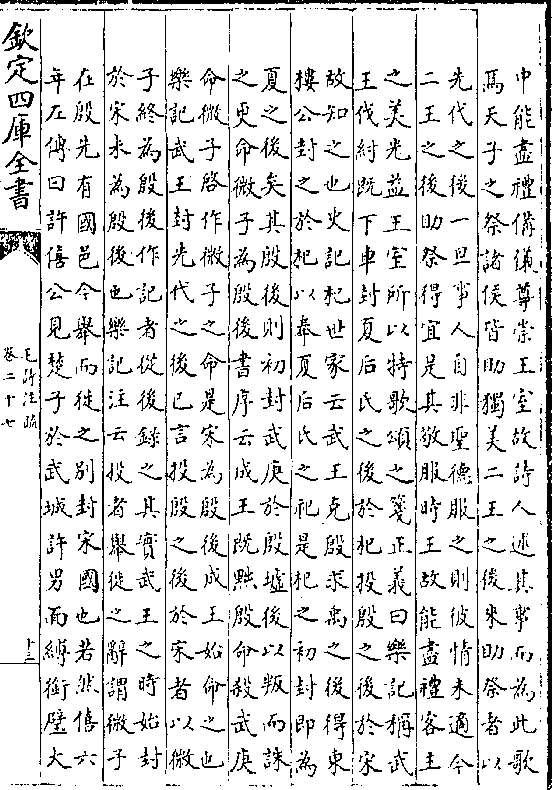 中能盡禮備儀尊崇王室故詩人述其事而為此歌
焉天子之祭諸侯皆助獨美二王之後來助祭者以
先代之後一旦事人自非聖德服之則彼情未適今
二王之後助祭得宜是其敬服時王故能盡禮客主
之美光益王室所以特歌頌之箋正義曰樂記稱武
王伐紂既下車封夏后氏之後於杞投殷之後於宋
故知之也史記杞世家云武王克殷求禹之後得東
樓公封之於杞以奉夏后氏之祀是杞之初封即為
夏之後矣其殷後則初封武庚於殷墟後以叛而誅
之更命微子為殷後書序云成王既黜殷命殺武庚
命微子啓作微子之命是宋為殷後成王始命之也
樂記武王封先代之後已言投殷之後於宋者以微
子終為殷後作記者從後錄之其實武王之時始封
於宋未為殷後也樂記注云投者舉徙之辭謂微子
在殷先有國邑今舉而徙之别封宋國也若然僖六
年左傳曰許僖公見楚子於武城許男面縛銜璧大
欽定四庫全書
毛詩注疏
卷二十七
十三